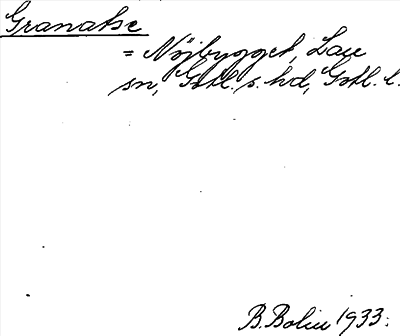 Granatse
= Nöjbygget, Lau
sn, Gotl. s. hd, Gotl. l.
B. Bolin 1933.